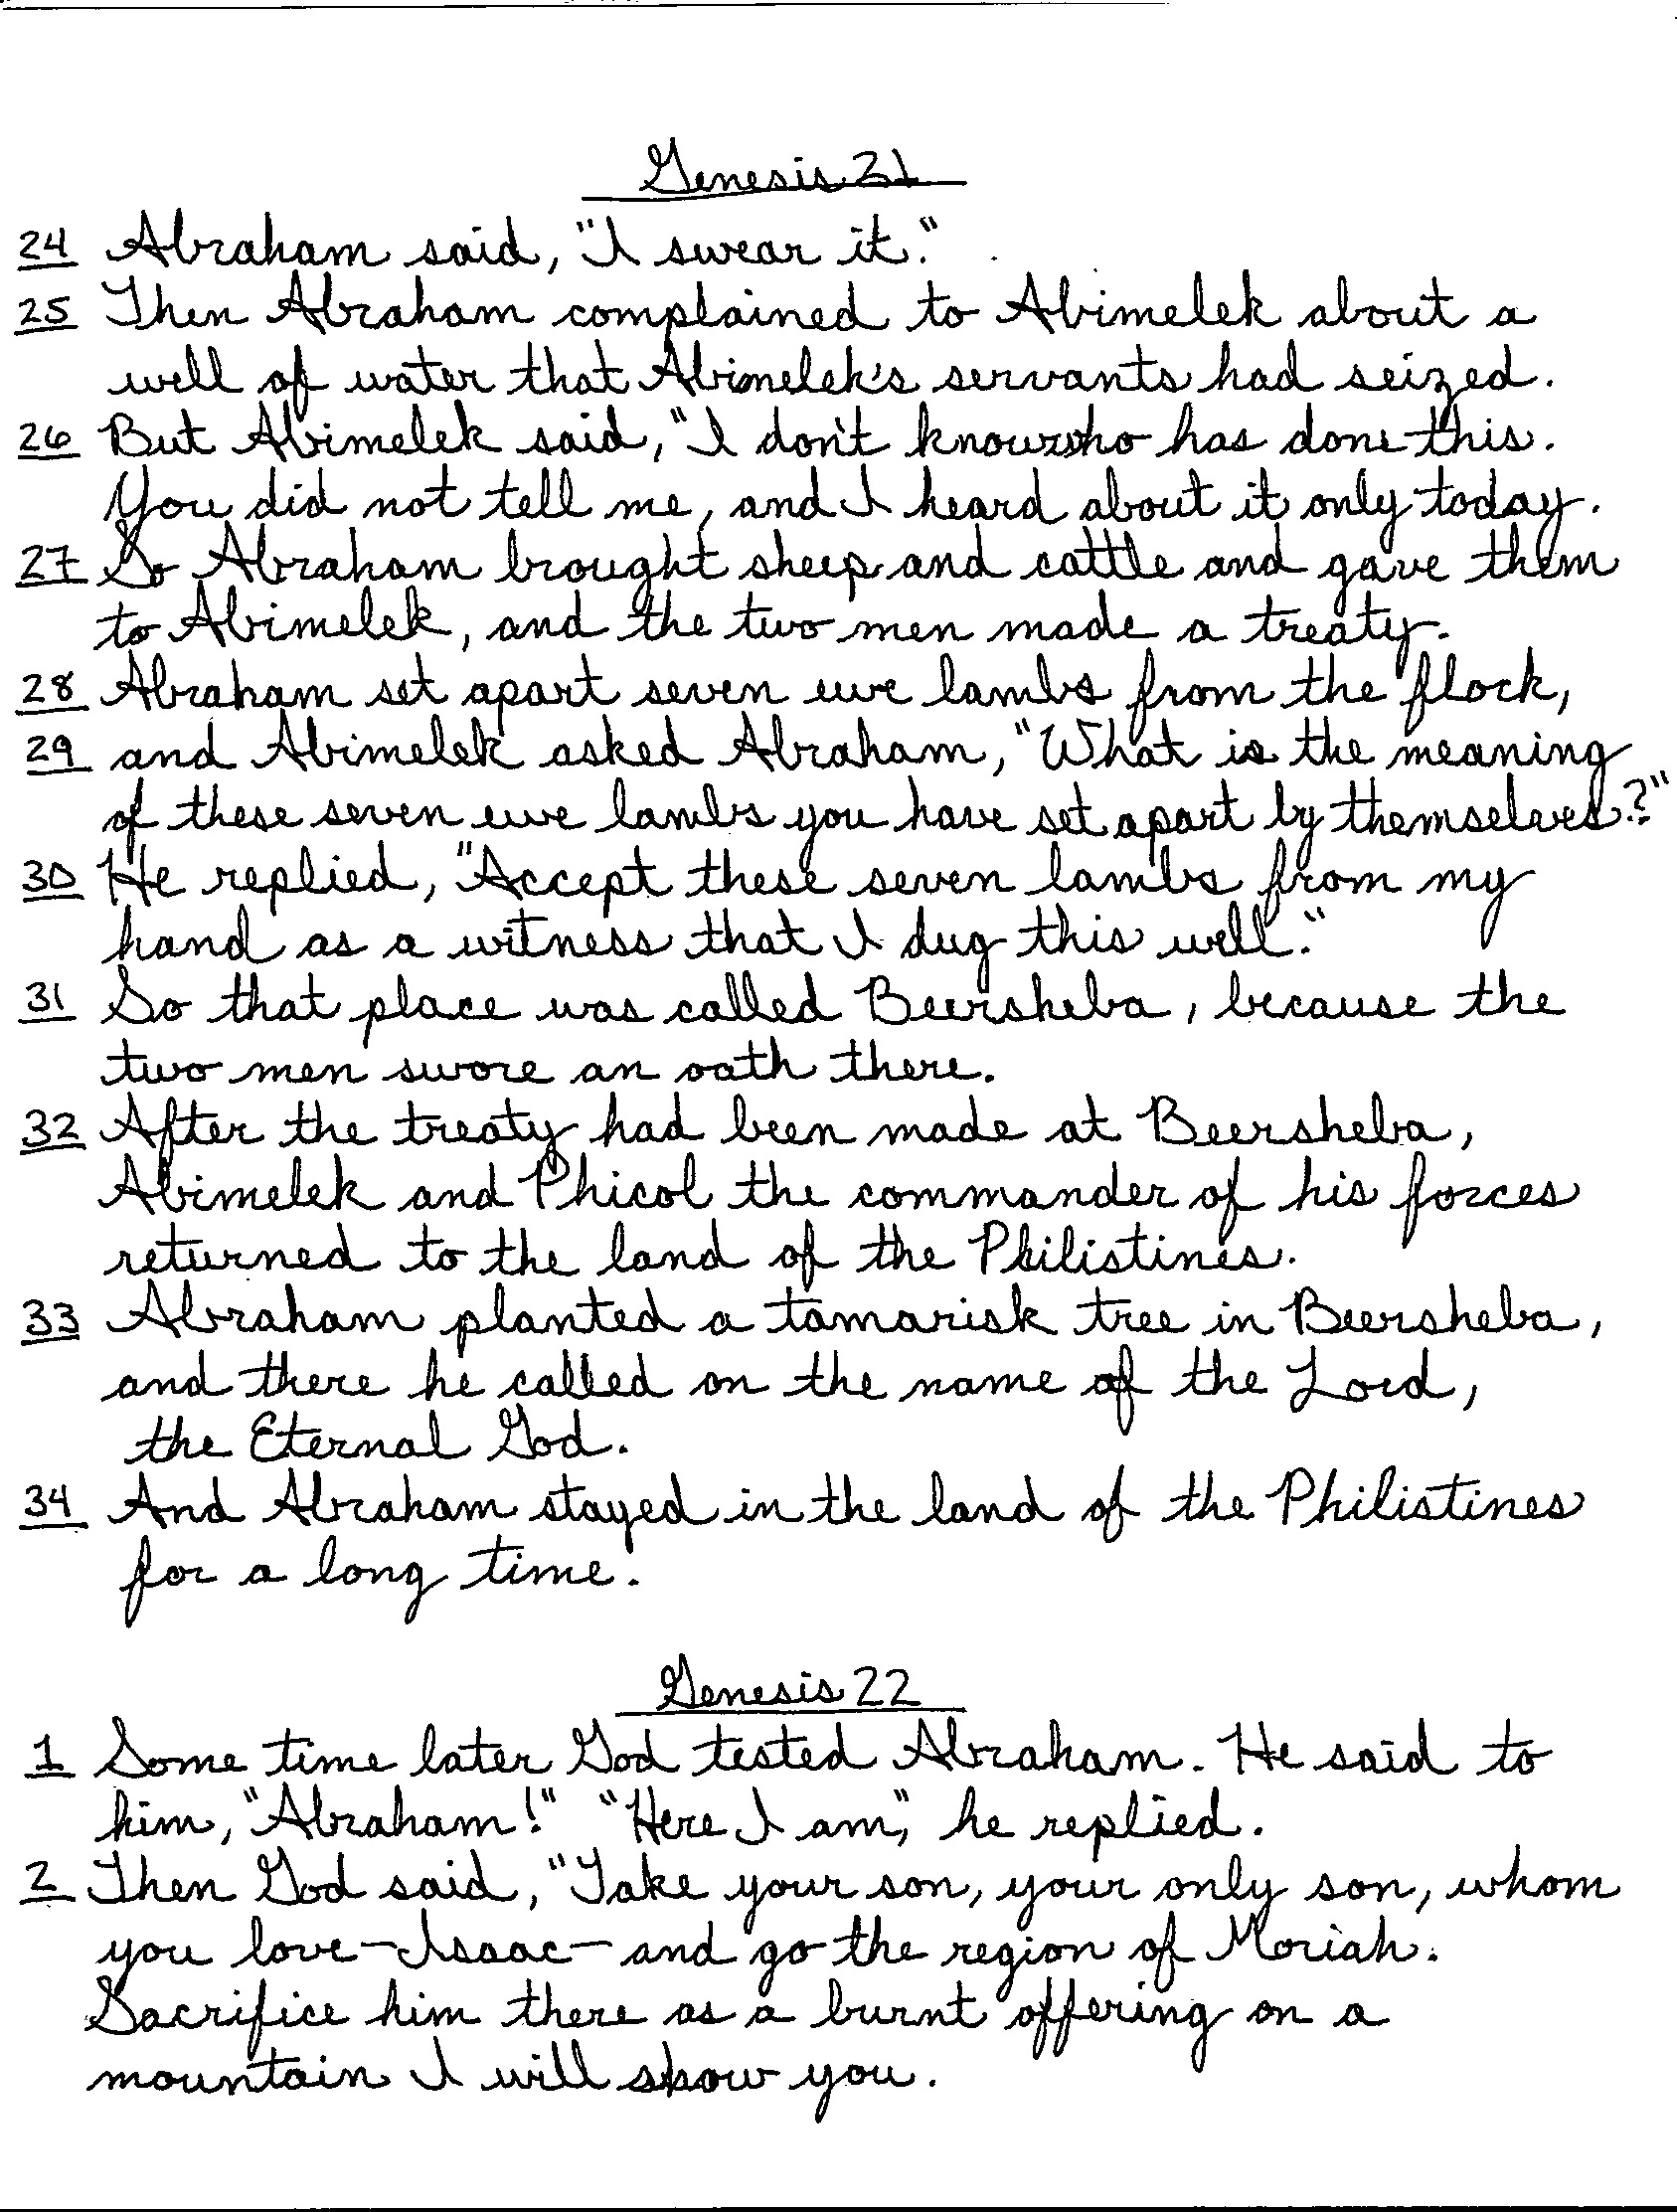 Genesis 21
24 Abraham said, "I swear it."
25 Then Abraham complained to Abimelek about a
well of water that Abimelek's servants had seized.
26 But Abimelek said, "I don't know who has done this.
You did not tell me, and I heard about it only today.
27 So Abraham brought sheep and cattle and gave them
to Abimelek, and the two men made a treaty.
28 Abraham set apart seven ewe lambs from the flock,
29 and Abimelek asked Abraham, "What is the meaning
of these seven ewe lambs you have set apart by themselves?"
30 He replied, "Accept these seven lambs from my
hand as a witness that I dug this well."
31 So that place was called Beersheba, because the
two men swore an oath there.
32 After the treaty had been made at Beersheba,
Abimelek and Phicol the commander of his forces
returned to the land of the Philistines.
33 Abraham planted a tamarisk tree in Beersheba,
and there he called on the name of the Lord,
the Eternal God.
34 And Abraham stayed in the land of the Philistines
for a long time.
Genesis 22
1 Some time later God tested Abraham. He said to
him, "Abraham!" "Here I am," he replied.
2 Then God said, "Take your son, your only son, whom
you love-Isaac-and go the region of Moriah.
Sacrifice him there as a burnt offering on a
mountain I will show you.